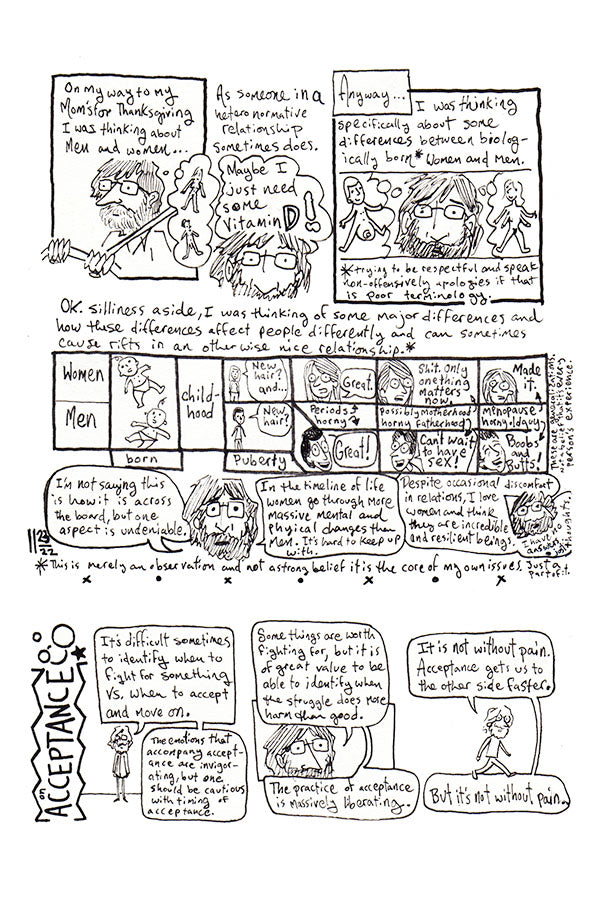 On my way to my
Mom's for Thanksgiving
I was thinking about
Men and women...
As someone in a
heteronormative
relationship
sometimes does.
Maybe I
just need
some
Vitamin D!
Anyway...
I was thinking
specifically about some
differences between biolog-
ically born* Women and Men.
*trying to be respectful and speak
non-offensively apologies if that
is poor terminology.
OK. Silliness aside, I was thinking of some major differences and
how these differences affect people differently and can sometimes
cause rifts in an otherwise nice relationship.*
Women
Men
born
child-
hood
New
hair?
and...
New
hair?
Puberty
Great.
Periods
horny
Great!
Shit. Only
one thing
matters
now.
Possibly Motherhood
horny fatherhood?
Can't wait
to have
sex!
Made
it.
Menopause
horny oldguy
Boobs
and
Butts!
person's experience.
I'm not saying this
is how it is across
the board, but one
aspect is undeniable.
In the timeline of life
women go through more
Massive mental and
physical changes than
Men. It's hard to keep up
with.
Despite occasional discomfort
in relations, I love
women and think
they are incredible
and resilient beings.
I have no
answers,
just
thoughts.
11/23/22
*This is merely an observation and not a strong belief it is the core of my own issues. Just a
part of it.
on
ACCEPTANCE
It's difficult sometimes
to identify when to
fight for something
VS. when to accept
and move on.
The emotions that
accompany accept-
ance are invigor-
ating, but one
should be cautious
with timing of
acceptance.
Some things are worth
fighting for, but it is
of great value to be
able to identify when
the struggle does more
harm than good.
The practice of acceptance
is massively liberating..
It is not without pain.
Acceptance gets us to
the other side faster.
But it's not without pain.